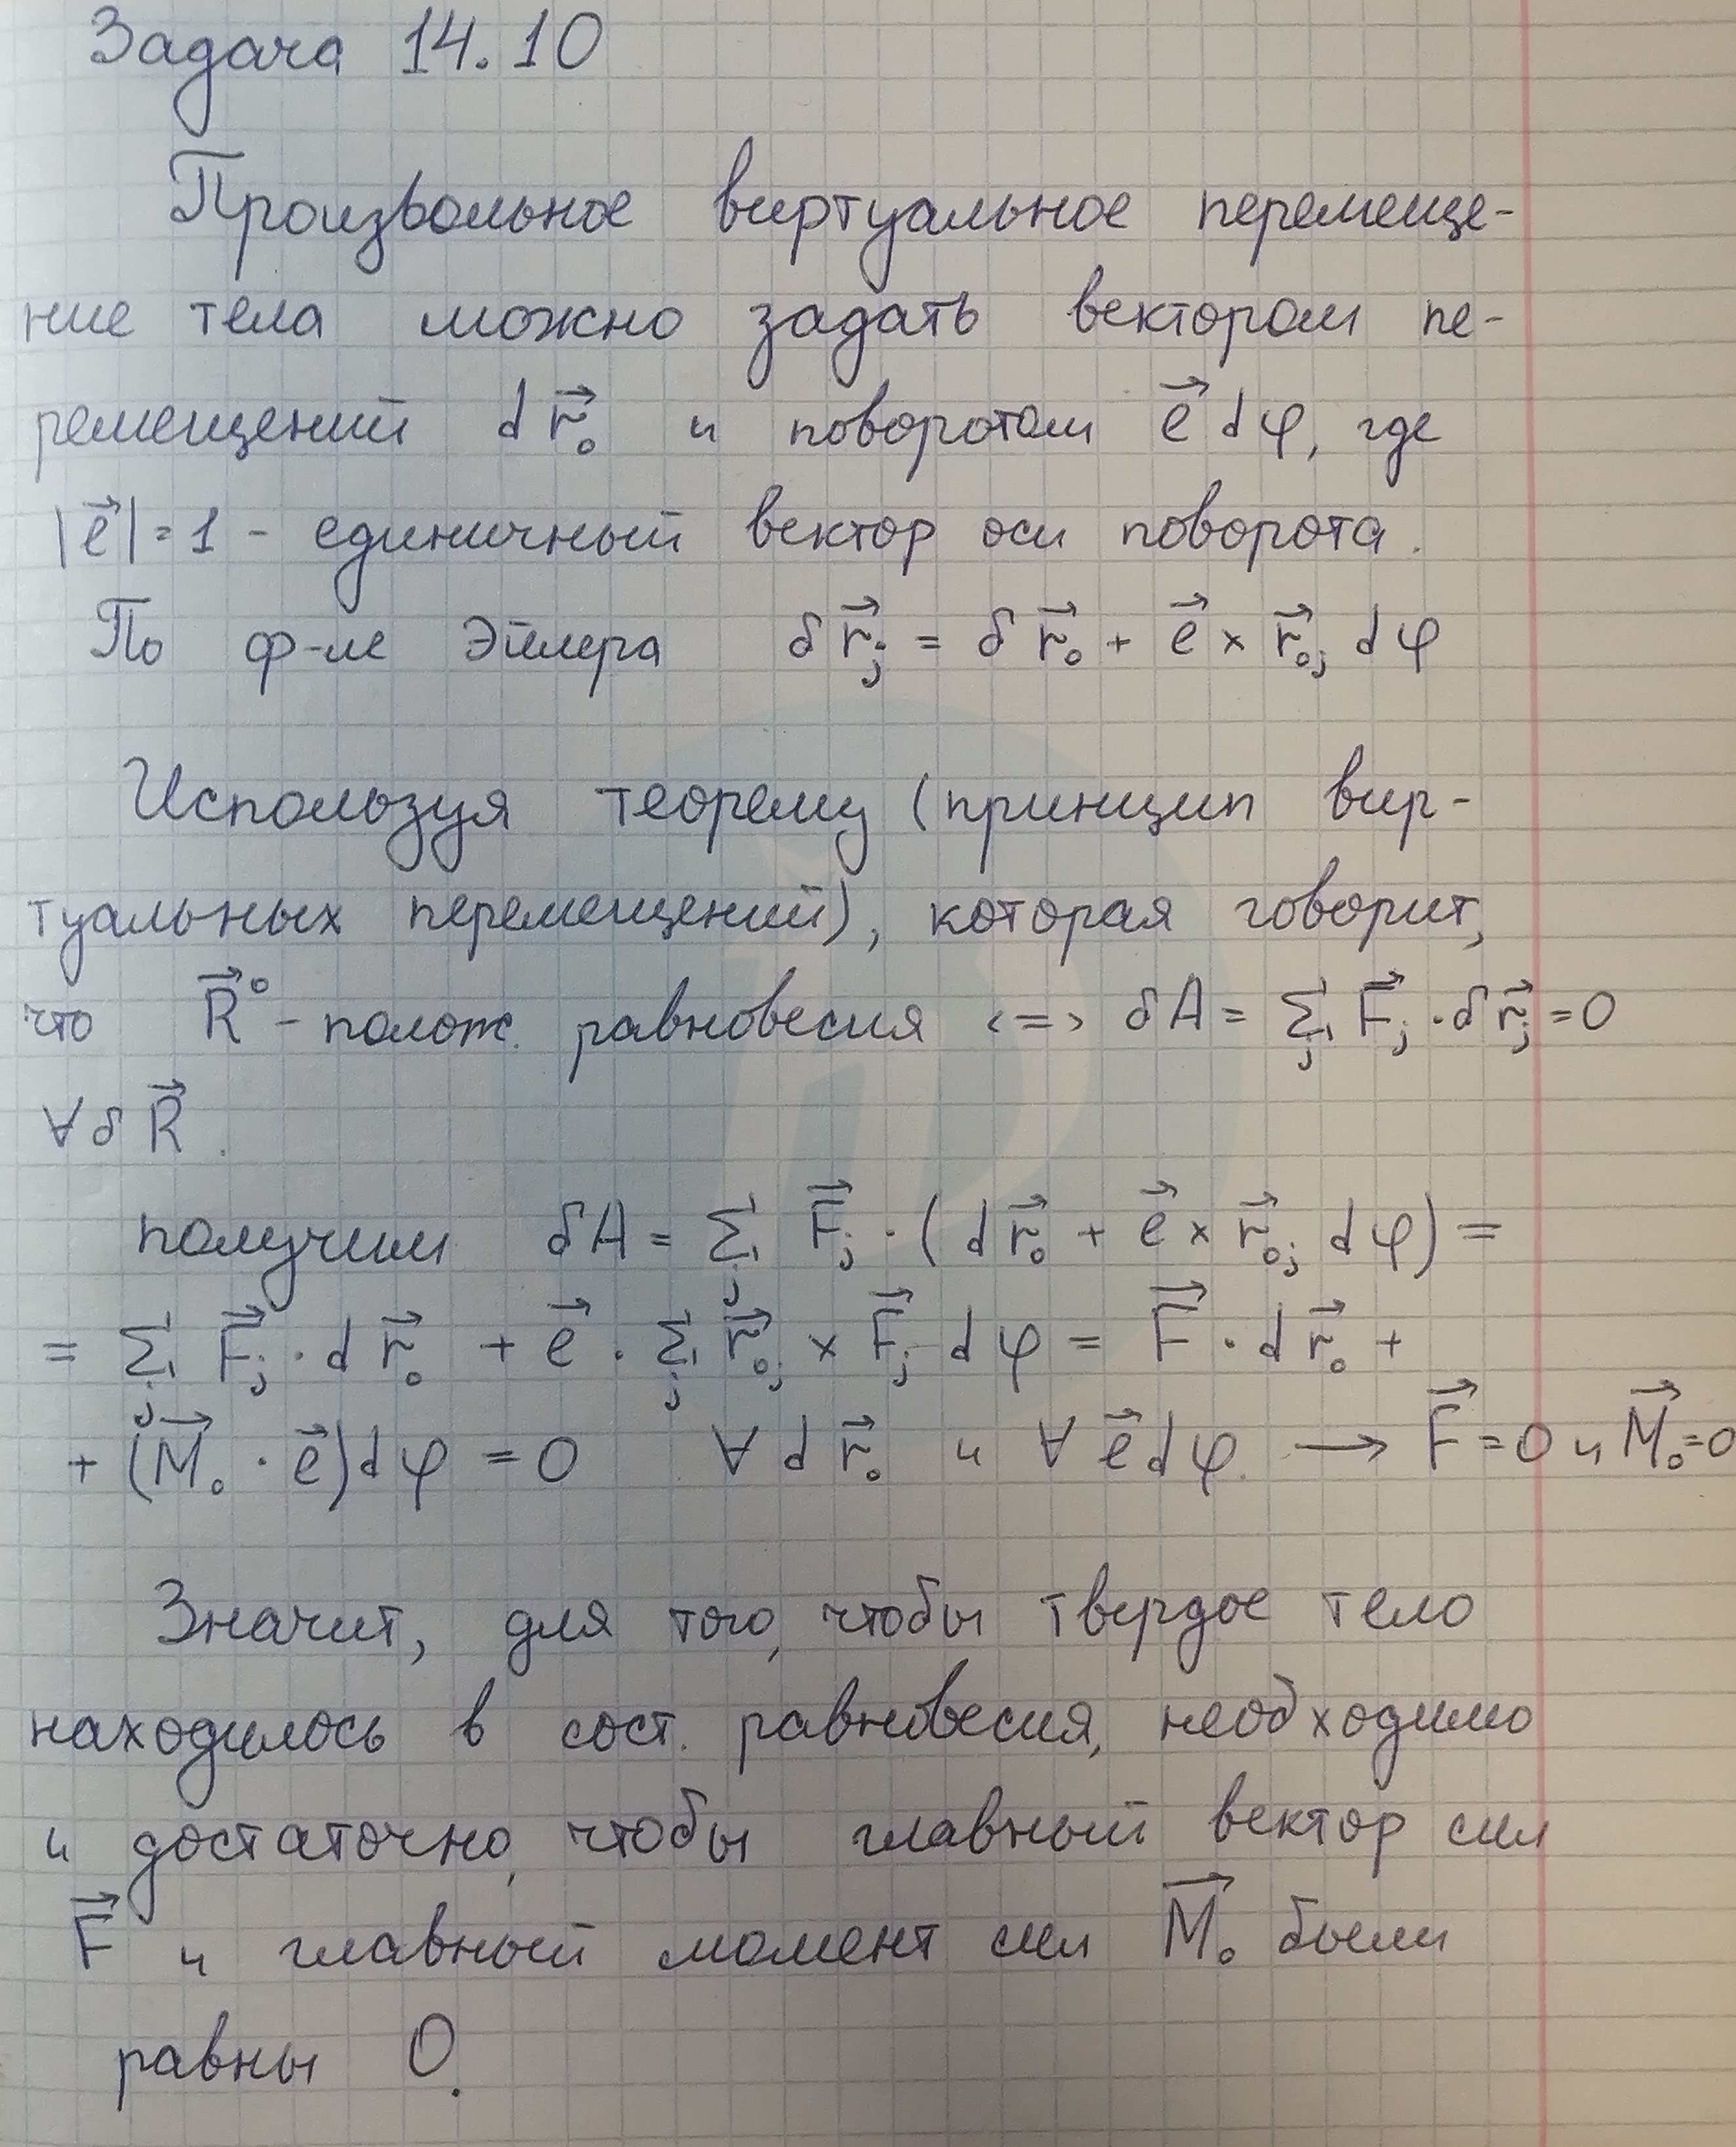 Задача 14.10
Произвольное виртуальное перемеще-
ние тела можно задать вектором пе-
ремещений d r⃗₀ и поворотом e⃗ dφ, где
|e⃗| = 1 - единичный вектор оси поворота.
По ф-ле Эйлера δ r⃗ⱼ = δ r⃗₀ + e⃗ × r⃗₀ⱼ dφ
Используя теорему (принцип вир-
туальных перемещений), которая говорит,
что R⃗⁰ - полож. равновесия <=> δA = Σⱼ F⃗ⱼ · δ r⃗ⱼ = 0
∀ δ R⃗.
получим δA = Σⱼ F⃗ⱼ · (d r⃗₀ + e⃗ × r⃗₀ⱼ dφ) =
= Σⱼ F⃗ⱼ · d r⃗₀ + e⃗ · Σⱼ r⃗₀ⱼ × F⃗ⱼ dφ = F⃗ · d r⃗₀ +
+ (M⃗₀ · e⃗) dφ = 0 ∀ d r⃗₀ и ∀ e⃗ dφ. → F⃗ = 0 и M⃗₀ = 0
Значит, для того, чтобы твердое тело
находилось в сост. равновесия, необходимо
и достаточно, чтобы главный вектор сил
F⃗ и главный момент сил M⃗₀ были
равны 0.